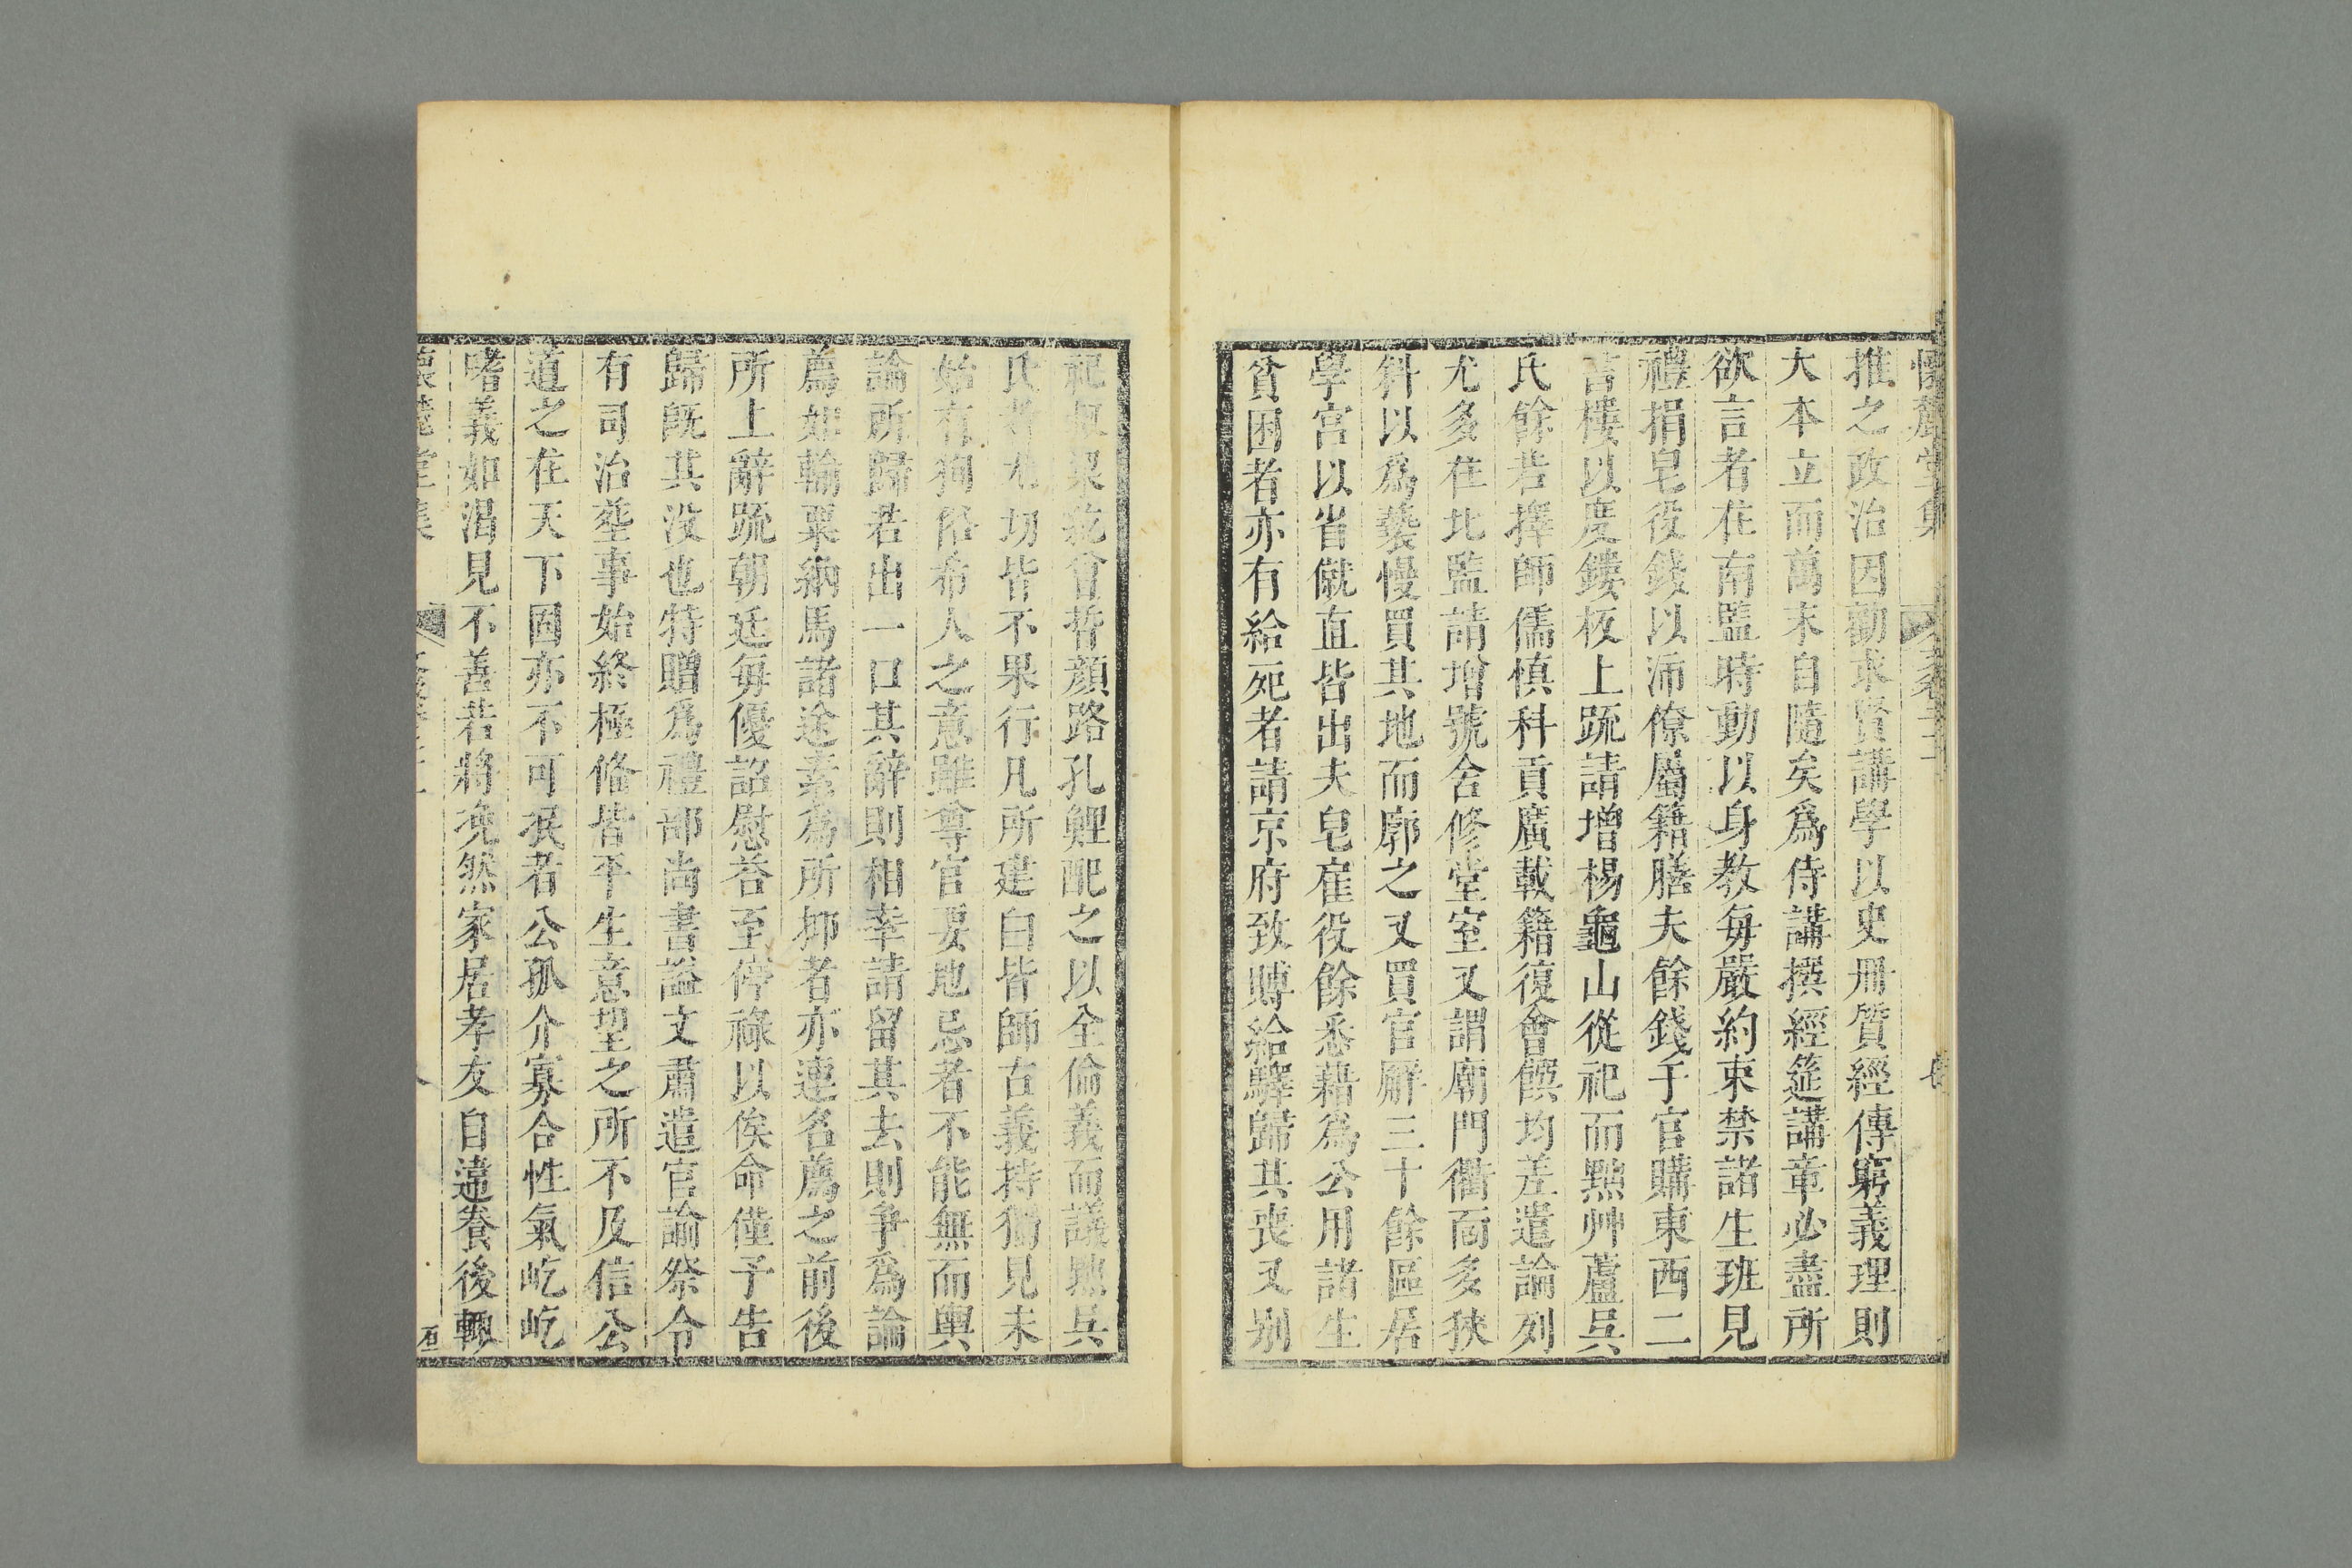 推之政治因勸求賢講學以史冊質經傳窮義理則
大本立而萬末自隨矣爲侍講撰經筵講章必盡所
欲言者在南監時動以身教毎嚴約束禁諸生班見
禮捐皂役錢以沛僚屬籍膳夫餘錢于官購東西二
書樓以庋鏤板上疏請增楊龜山從祀而黜艸蘆吳
氏餘若擇師儒慎科貢廣載籍復會饌均差遣論列
尤多在北監請增號舍修堂室又謂廟門衢面多狹
斜以爲褻慢買其地而廓之又買官廨三十餘區居
學宮以省僦直皆出夫皂雇役餘悉藉爲公用諸生
貧困者亦有給死者請京府致賻給驛歸其喪又别
祀叔梁紇曾晳顔路孔鯉配之以全倫義而議黜吳
氏者尤切皆不果行凡所建白皆師古義持獨見未
始有狥俗希人之意雖尊官要地忌者不能無而輿
論所歸若出一口其辭則相幸請留其去則爭爲論
薦如輸粟納馬諸途素爲所抑者亦連名薦之前後
所上辭疏朝廷毎優詔慰荅至停祿以俟命僅予告
歸既其没也特贈爲禮部尚書謚文肅遣官諭祭令
有司治塟事始終極俻皆平生意望之所不及信公
道之在天下固亦不可泯者公孤介寡合性氣屹屹
嗜義如渴見不善若將凂然家居孝友自違養後輒
懷麓堂集